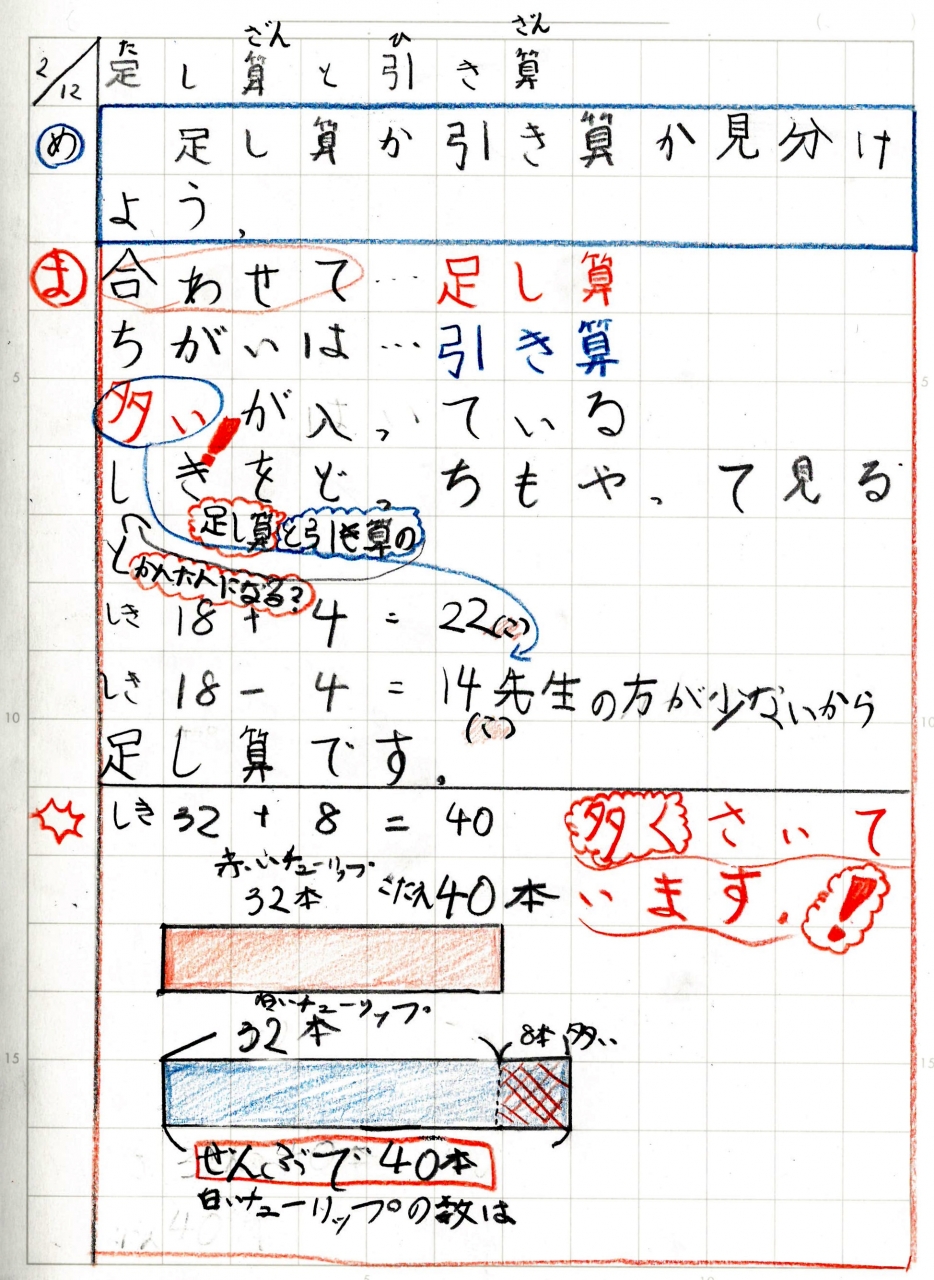 2/12 足し算と引き算
た ざん ひ ざん
め 足し算か引き算か見分け
よう。
ま 合わせて…足し算
ちがいは…引き算
多いが入っている
しきをどっちもやって見る
と
!
足し算と引き算の
かんたんになる?
しき 18 + 4 = 22(こ)
しき 18 - 4 = 14 先生の方が少ないから
(こ)
足し算です。
しき 32 + 8 = 40
多くさいて
います。!
赤いチューリップ
32本
こたえ40本
白いチューリップ
32本
8本多い
ぜんぶで40本
白いチューリップの数は
5
10
15
5
10
15
5
10